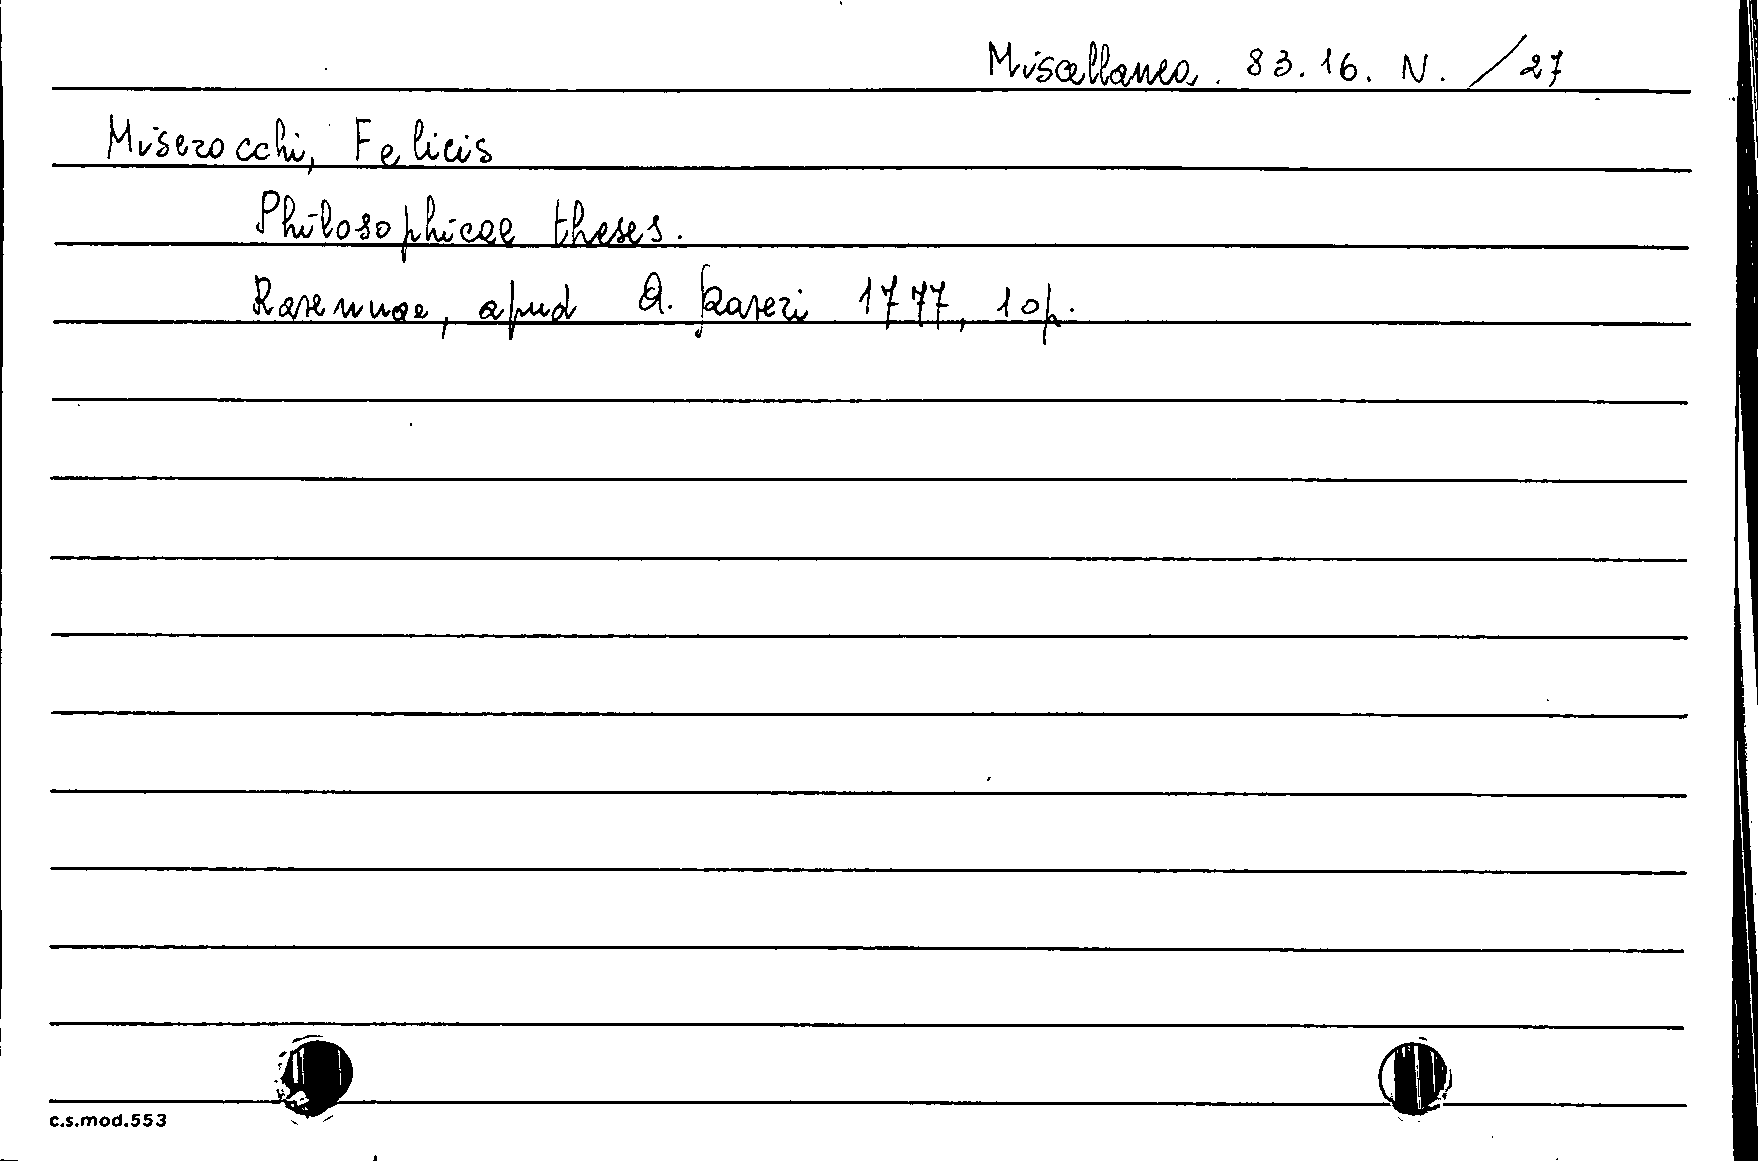 Miscellanea. 83.16. N. /27
Miserocchi, Felicis
Philosophicae theses.
Ravennae, apud A. Raveri 1777, 10p.
c.s.mod.553